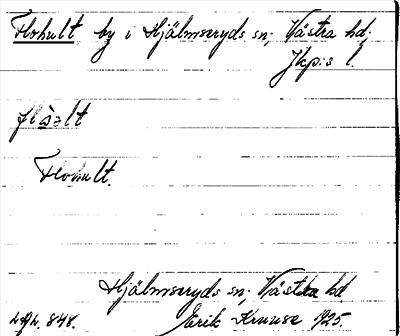 Flohult by i Hjälmseryds sn; Västra hd;
Jkp:s l.
Flohult.
Hjälmseryds sn; Västra hd
Erik Kruuse 1925.